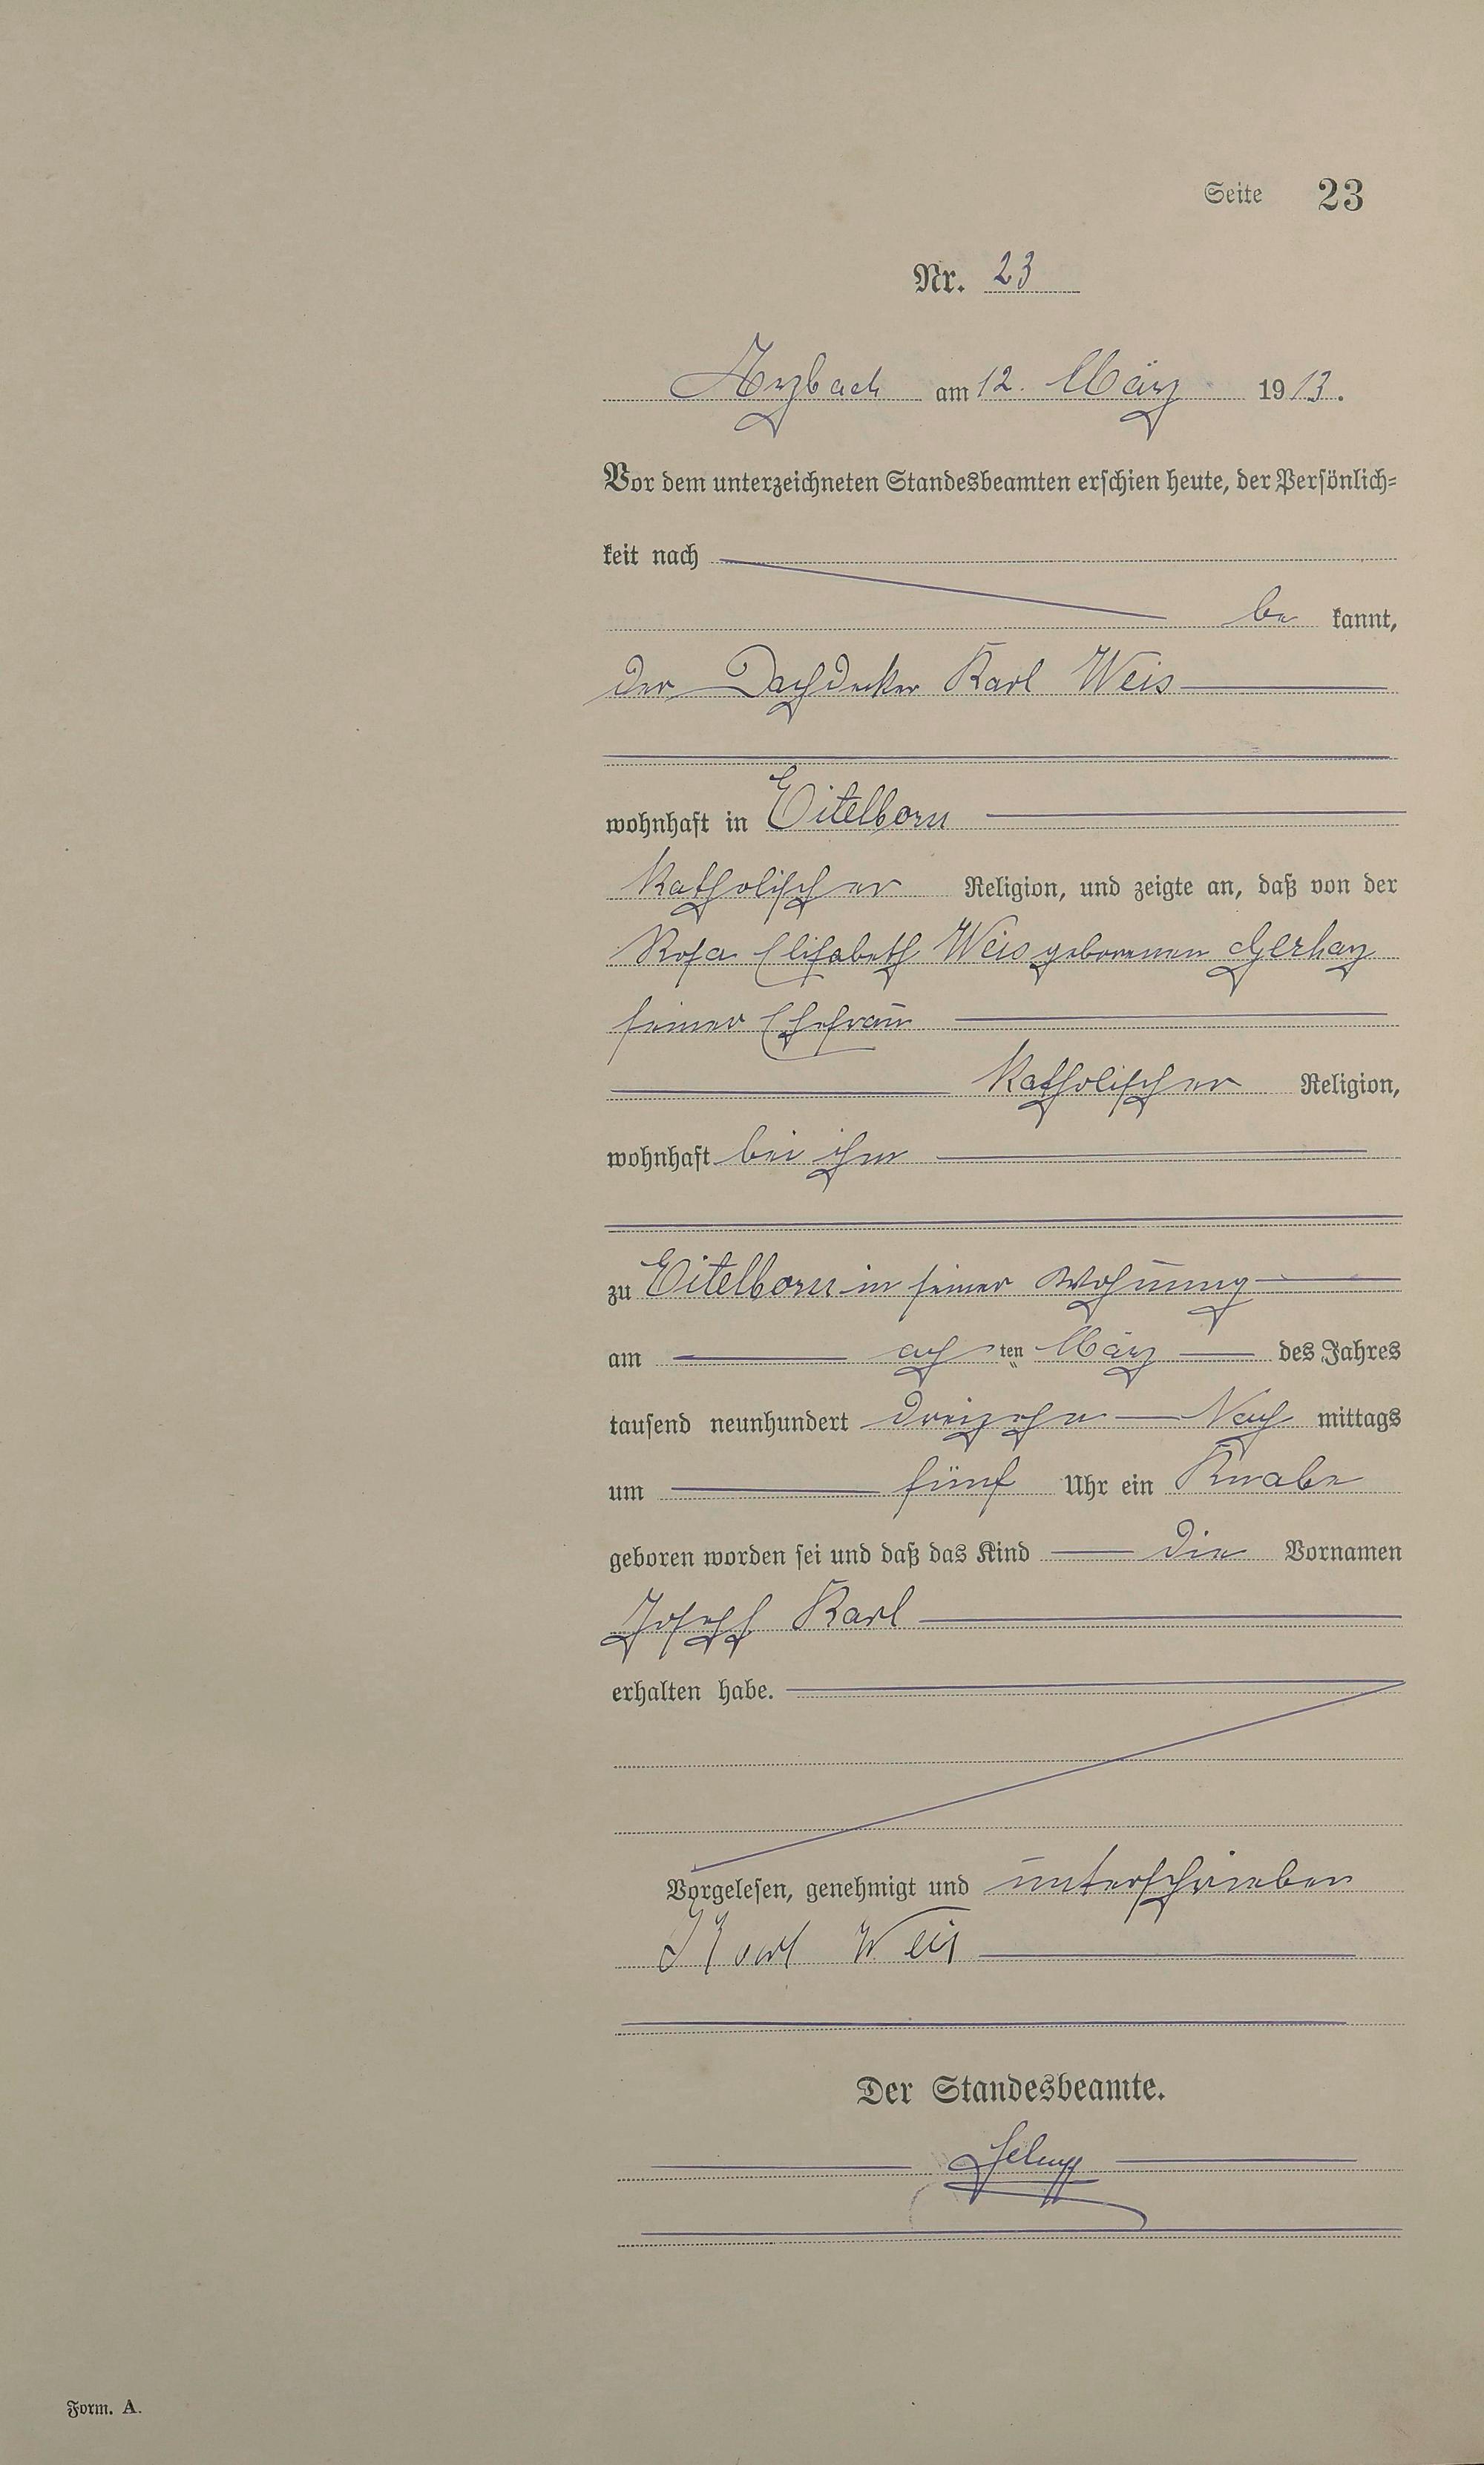 Seite 23
Nr. 23
Arzbach am 12. März 1913.
Vor dem unterzeichneten Standesbeamten erschien heute, der Persönlich-
keit nach
be kannt,
der Dachdecker Karl Weis
wohnhaft in Eitelborn
katholischer Religion, und zeigte an, daß von der
Rosa Elisabeth Weis geborenen Gerharz
seiner Ehefrau
katholischer Religion,
wohnhaft bei ihm
zu Eitelborn in seiner Wohnung
am achten März des Jahres
tausend neunhundert dreizehn Nach mittags
um fünf Uhr ein Knabe
geboren worden sei und daß das Kind die Vornamen
Joseph Karl
erhalten habe.
Vorgelesen, genehmigt und unterschrieben
Karl Weis
Der Standesbeamte.
Form. A.